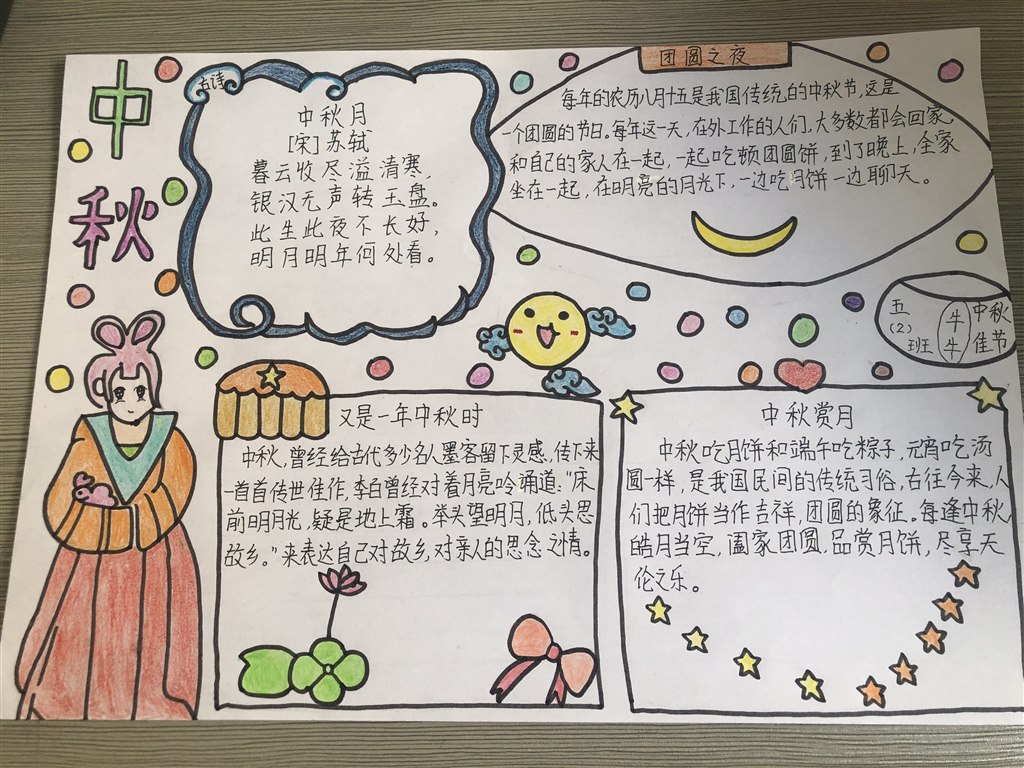 中
秋
古诗
中秋月
[宋]苏轼
暮云收尽溢清寒,
银汉无声转玉盘。
此生此夜不长好,
明月明年何处看。
团圆之夜
每年的农历八月十五是我国传统的中秋节,这是
一个团圆的节日。每年这一天,在外工作的人们,大多数都会回家,
和自己的家人在一起,一起吃顿团圆饼,到了晚上,全家
坐在一起,在明亮的月光下,一边吃月饼一边聊天。
五
(2)
班
牛
牛
中秋
佳节
又是一年中秋时
中秋,曾经给古代多少名人墨客留下灵感,传下来
一首首传世佳作,李白曾经对着月亮吟诵道:“床
前明月光,疑是地上霜。举头望明月,低头思
故乡。”来表达自己对故乡,对亲人的思念之情。
中秋赏月
中秋吃月饼和端午吃粽子,元宵吃汤
圆一样,是我国民间的传统习俗,古往今来,人
们把月饼当作吉祥,团圆的象征。每逢中秋
皓月当空,阖家团圆,品赏月饼,尽享天
伦之乐。